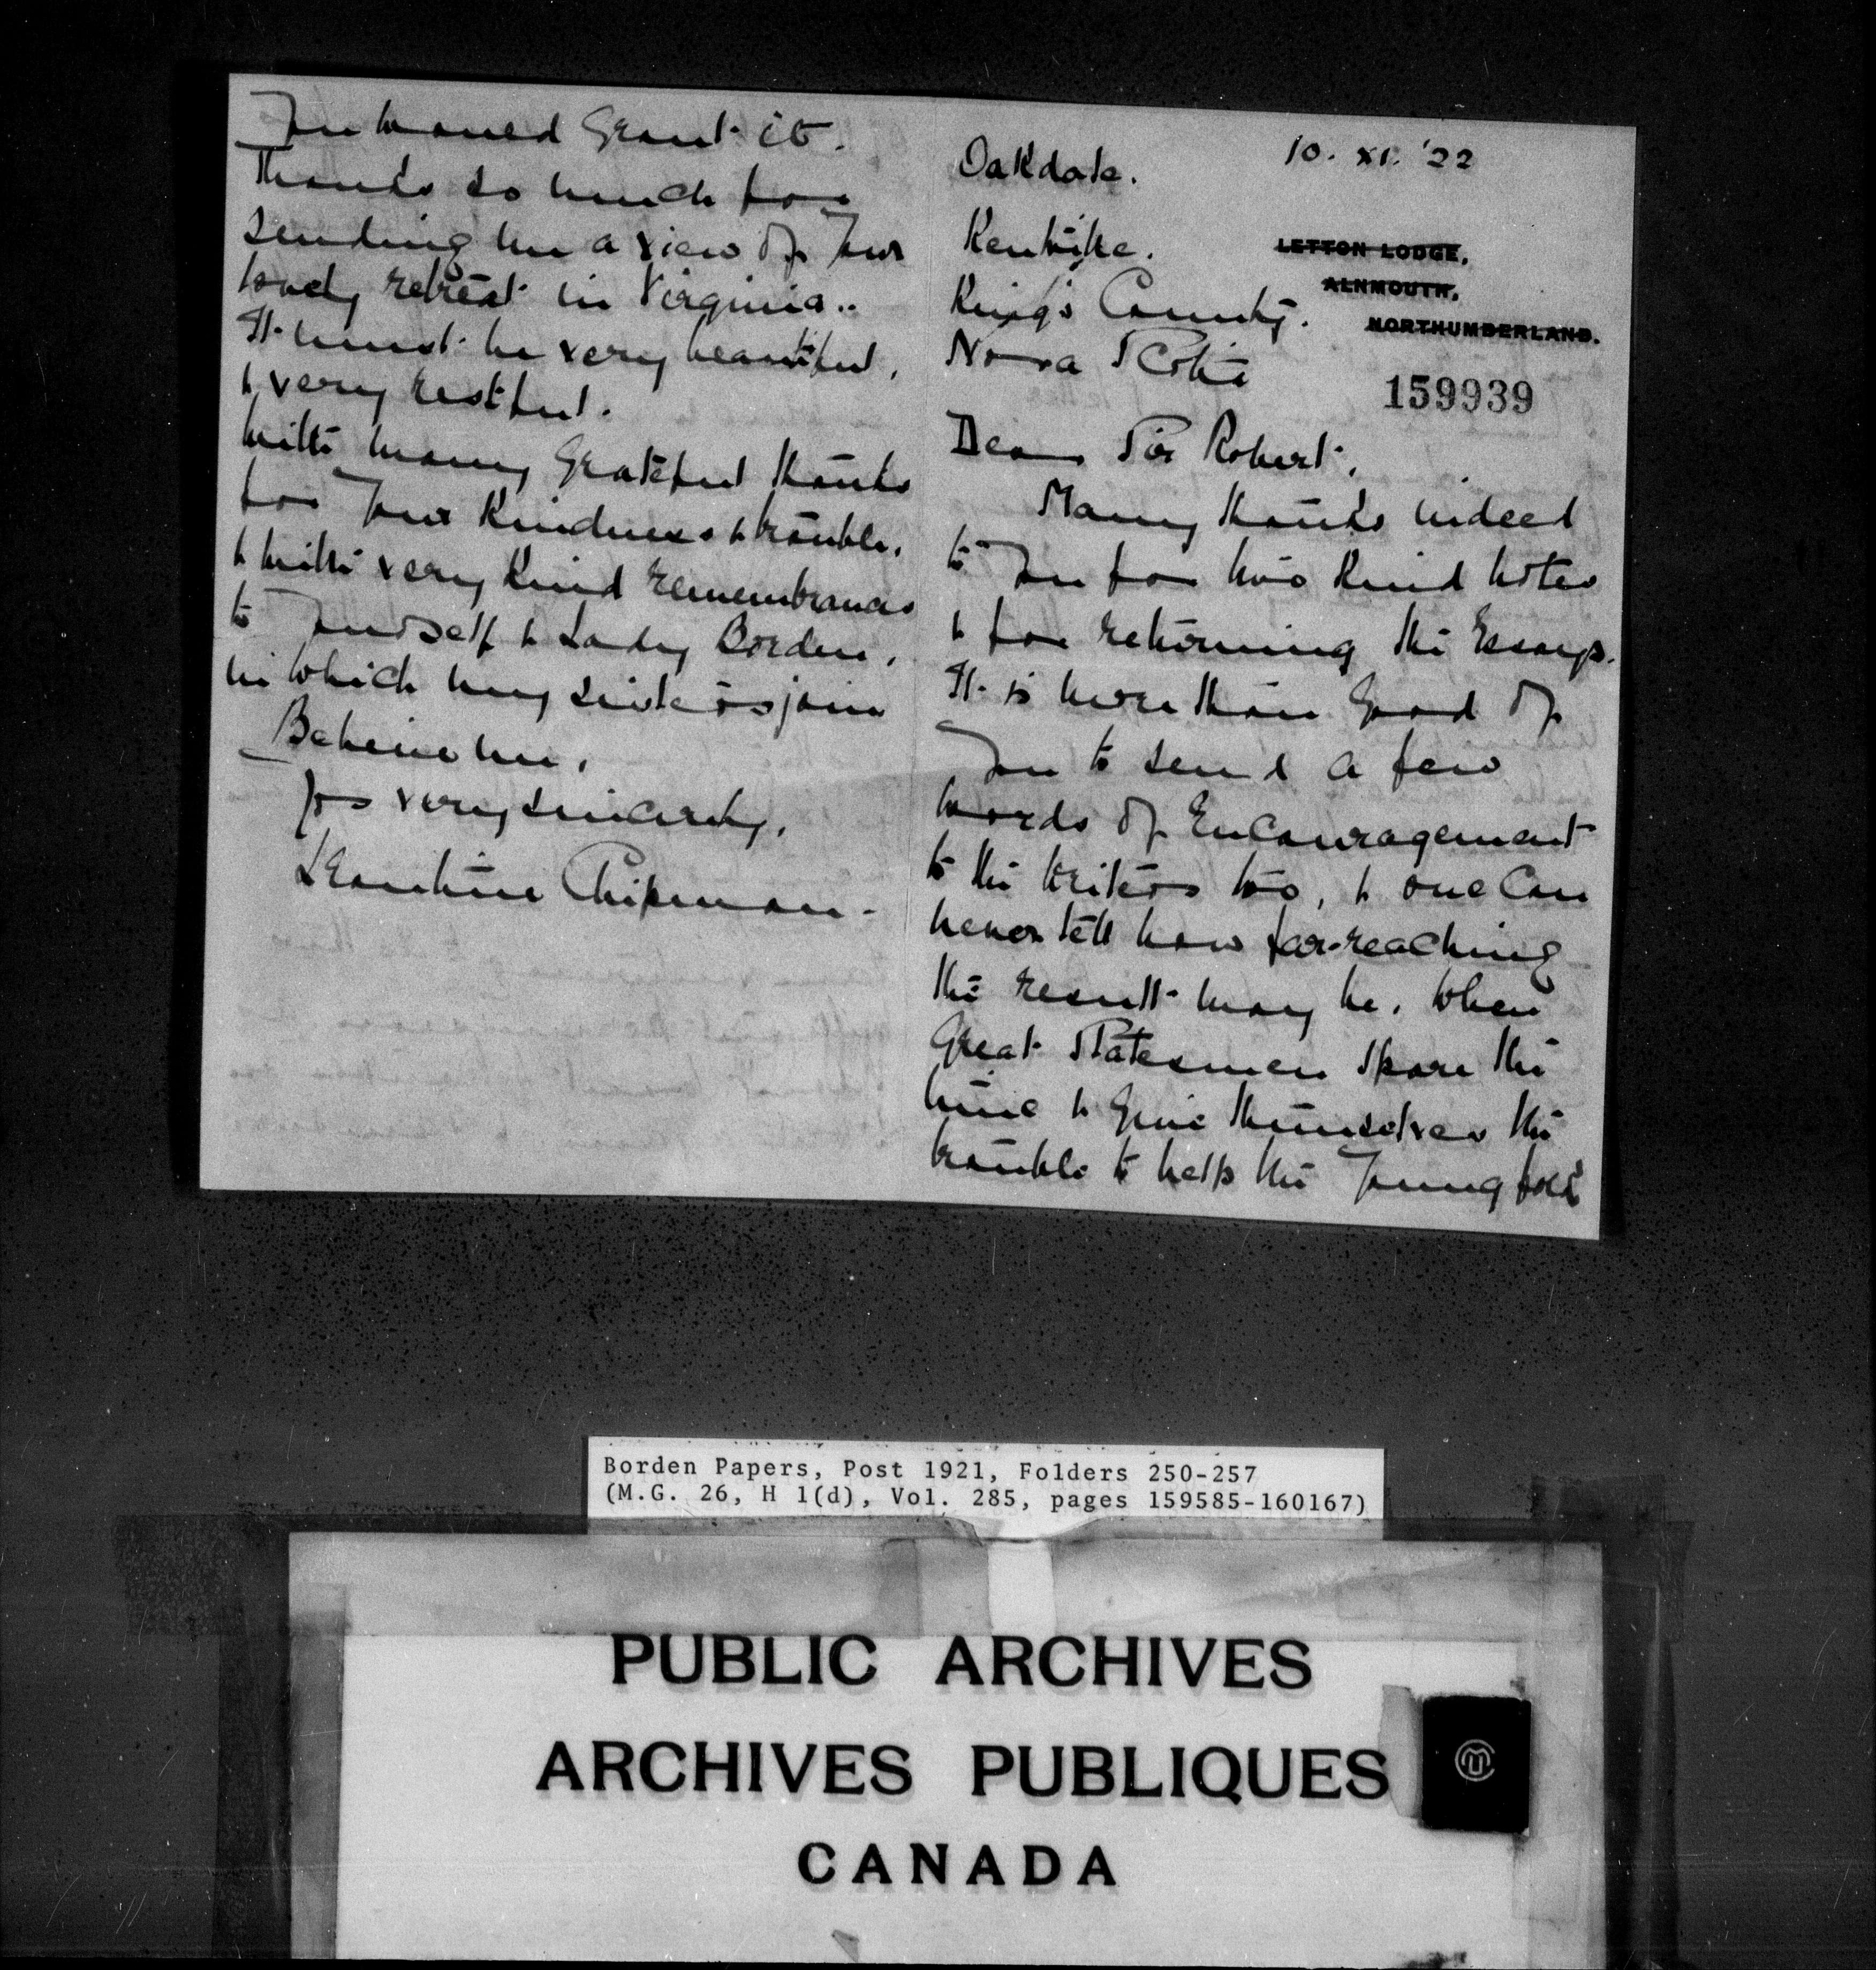 You would grant it.
Thanks so much for
sending me a view of your
lovely retreat in Virginia..
It must be very beautiful,
& very restful.
With many grateful thanks
for your kindness & trouble,
& with very kind remembrances
to yourself & Lady Borden,
in which my sisters join
Believe me,
Yrs very sincerely,
Leontine Chipman-
10. XI. '22
Oakdale.
Kentville.
King's County.
Nova Scotia
LETTON LODGE,
ALNMOUTH,
NORTHUMBERLAND.
159939
Dear Sir Robert,
Many thanks indeed
to you for two kind notes
& for returning the Essays.
It is more than good of
you to send a few
words of Encouragement
to the writers too, & one can
never tell how far-reaching
the result may be, when
Great Statesmen spare the
time & give themselves the
trouble to help the young folk
Borden Papers, Post 1921, Folders 250-257
(M.G. 26, H 1(d), Vol. 285, pages 159585-160167)
PUBLIC ARCHIVES
ARCHIVES PUBLIQUES
CANADA